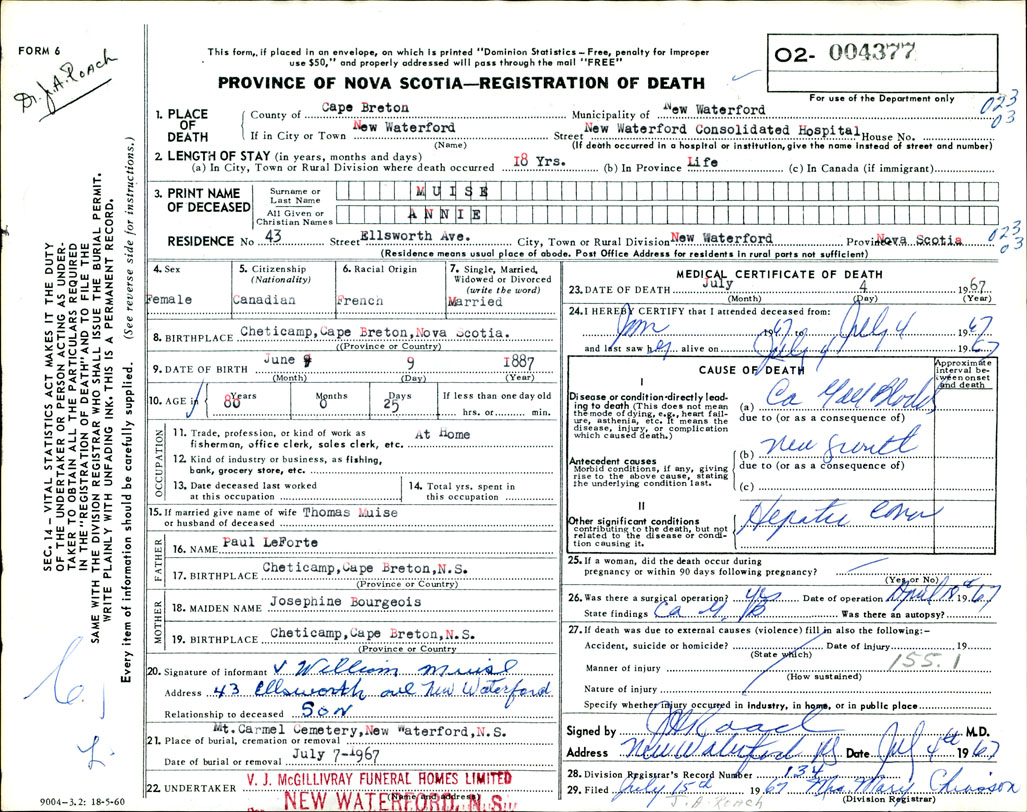 FORM 6
Dr. J.A. Roach
This form, if placed in an envelope, on which is printed "Dominion Statistics – Free, penalty for improper
use $50," and properly addressed will pass through the mail "FREE"
PROVINCE OF NOVA SCOTIA—REGISTRATION OF DEATH
O2- 004377
For use of the Department only
023
03
1. PLACE OF DEATH
County of Cape Breton Municipality of New Waterford
If in City or Town New Waterford Street New Waterford Consolidated Hospital House No.
(Name) (If death occurred in a hospital or institution, give the name instead of street and number)
2. LENGTH OF STAY (in years, months and days)
(a) In City, Town or Rural Division where death occurred 18 Yrs. (b) In Province Life (c) In Canada (if immigrant)
3. PRINT NAME OF DECEASED
Surname or Last Name MUISE
All Given or Christian Names ANNIE
RESIDENCE No 43 Street Ellsworth Ave. City, Town or Rural Division New Waterford Province Nova Scotia
023
03
(Residence means usual place of abode. Post Office Address for residents in rural parts not sufficient)
4. Sex
Female
5. Citizenship
(Nationality)
Canadian
6. Racial Origin
French
7. Single, Married, Widowed or Divorced
(write the word)
Married
8. BIRTHPLACE Cheticamp, Cape Breton, Nova Scotia.
((Province or Country)
9. DATE OF BIRTH June 9 1887
(Month) (Day) (Year)
10. AGE in Years Months Days 25 If less than one day old
hrs. or min.
OCCUPATION
11. Trade, profession, or kind of work as
fisherman, office clerk, sales clerk, etc. At Home
12. Kind of industry or business, as fishing,
bank, grocery store, etc.
13. Date deceased last worked
at this occupation
14. Total yrs. spent in
this occupation
15. If married give name of wife
or husband of deceased Thomas Muise
FATHER
16. NAME Paul LeForte
17. BIRTHPLACE Cheticamp, Cape Breton, N.S.
(Province or Country)
MOTHER
18. MAIDEN NAME Josephine Bourgeois
19. BIRTHPLACE Cheticamp, Cape Breton, N.S.
(Province or Country
20. Signature of informant William Muise
Address 43 Ellsworth ave New Waterford
Relationship to deceased Son
Mt. Carmel Cemetery, New Waterford, N.S.
21. Place of burial, cremation or removal
Date of burial or removal July 7-1967
22. UNDERTAKER V. J. McGILLIVRAY FUNERAL HOMES LIMITED
(Name and address)
NEW WATERFORD, N.S.
MEDICAL CERTIFICATE OF DEATH
23. DATE OF DEATH July 4 1967
(Month) (Day) (Year)
24. I HEREBY CERTIFY that I attended deceased from:
Jan 1967 to July 4 1967
and last saw her alive on July 4 1967
CAUSE OF DEATH
Approximate interval between onset and death
I
Disease or condition directly leading to death (This does not mean the mode of dying, e.g., heart failure, asthenia, etc. It means the disease, injury, or complication which caused death.)
(a) Ca Gall Bladder
due to (or as a consequence of)
Antecedent causes
Morbid conditions, if any, giving rise to the above cause, stating the underlying condition last.
(b) New Growth
due to (or as a consequence of)
(c)
II
Other significant conditions
contributing to the death, but not related to the disease or condition causing it.
Hepatic
25. If a woman, did the death occur during
pregnancy or within 90 days following pregnancy?
(Yes or No)
26. Was there a surgical operation? yes Date of operation April 18th 1967
State findings Ca G. B Was there an autopsy?
27. If death was due to external causes (violence) fill in also the following:–
Accident, suicide or homicide? Date of injury 19
(State which)
155.1
Manner of injury
(How sustained)
Nature of injury
Specify whether injury occurred in industry, in home, or in public place
Signed by JA Roach M.D.
Address New Waterford NS Date July 4th 1967
28. Division Registrar's Record Number 134
29. Filed July 15th 1967 Mrs. Mary Chiasson
(Division Registrar)
J. A. ROACH
SEC. 14 – VITAL STATISTICS ACT MAKES IT THE DUTY
OF THE UNDERTAKER OR PERSON ACTING AS UNDER-
TAKER TO OBTAIN ALL THE PARTICULARS REQUIRED
IN THE "REGISTRATION OF DEATH" AND TO FILE THE
SAME WITH THE DIVISION REGISTRAR WHO SHALL ISSUE THE BURIAL PERMIT.
WRITE PLAINLY WITH UNFADING INK. THIS IS A PERMANENT RECORD.
Every item of information should be carefully supplied. (See reverse side for instructions.)
9004–3.2: 18-5-60